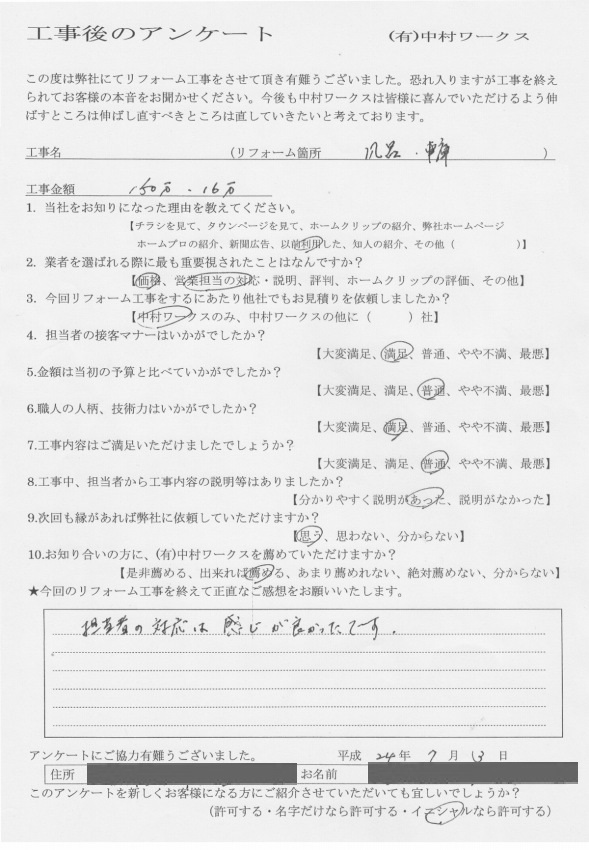 工事後のアンケート (有)中村ワークス
この度は弊社にてリフォーム工事をさせて頂き有難うございました。恐れ入りますが工事を終え
られてお客様の本音をお聞かせください。今後も中村ワークスは皆様に喜んでいただけるよう伸
ばすところは伸ばし直すべきところは直していきたいと考えております。
工事名 (リフォーム箇所 風呂・車庫 )
工事金額 150万・16万
1. 当社をお知りになった理由を教えてください。
【チラシを見て、タウンページを見て、ホームクリップの紹介、弊社ホームページ
ホームプロの紹介、新聞広告、以前利用した、知人の紹介、その他 ( )】
2. 業者を選ばれる際に最も重要視されたことはなんですか?
【価格、営業担当の対応・説明、評判、ホームクリップの評価、その他】
3. 今回リフォーム工事をするにあたり他社でもお見積りを依頼しましたか?
【中村ワークスのみ、中村ワークスの他に ( ) 社】
4. 担当者の接客マナーはいかがでしたか?
【大変満足、満足、普通、やや不満、最悪】
5.金額は当初の予算と比べていかがでしたか?
【大変満足、満足、普通、やや不満、最悪】
6.職人の人柄、技術力はいかがでしたか?
【大変満足、満足、普通、やや不満、最悪】
7.工事内容はご満足いただけましたでしょうか?
【大変満足、満足、普通、やや不満、最悪】
8.工事中、担当者から工事内容の説明等はありましたか?
【分かりやすく説明があった、説明がなかった】
9.次回も縁があれば弊社に依頼していただけますか?
【思う、思わない、分からない】
10.お知り合いの方に、(有)中村ワークスを薦めていただけますか?
【是非薦める、出来れば薦める、あまり薦めれない、絶対薦めない、分からない】
★今回のリフォーム工事を終えて正直なご感想をお願いいたします。
担当者の対応は感じが良かったです。
アンケートにご協力有難うございました。 平成 24年 7 月 13 日
住所 お名前
このアンケートを新しくお客様になる方にご紹介させていただいても宜しいでしょうか?
(許可する・名字だけなら許可する・イニシャルなら許可する)